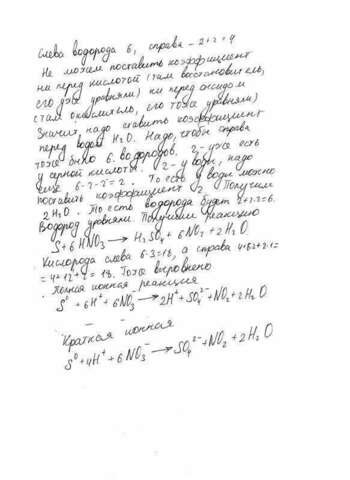 Слева водорода 6, справа - 2+2=4
Не можем поставить коэффициент
ни перед кислотой (там восстановитель,
его уже уравняли) ни перед оксидом
(там окислитель, его тоже уравняли)
Значит, надо ставить коэффициент
перед водой H₂O. Надо, чтобы справа
тоже было 6 водородов. 2 - уже есть
у серной кислоты. 2 - у воды, надо
еще 6-2-2=2. То есть у воды можно
поставить коэффициент 2. Получим
2H₂O. То есть водорода будет 2+2·2=6.
Водород уравняли. Получили реакцию
S+6HNO₃ → H₂SO₄ + 6NO₂ + 2H₂O
Кислорода слева 6·3=18, а справа 4+6·2+2·1=
=4+12+2=18. Тоже выровнено
Полная ионная реакция
S⁰ + 6H⁺ + 6NO₃⁻ → 2H⁺ + SO₄²⁻ + NO₂ + 2H₂O
Краткая ионная
S⁰ + 4H⁺ + 6NO₃⁻ → SO₄²⁻ + NO₂ + 2H₂O